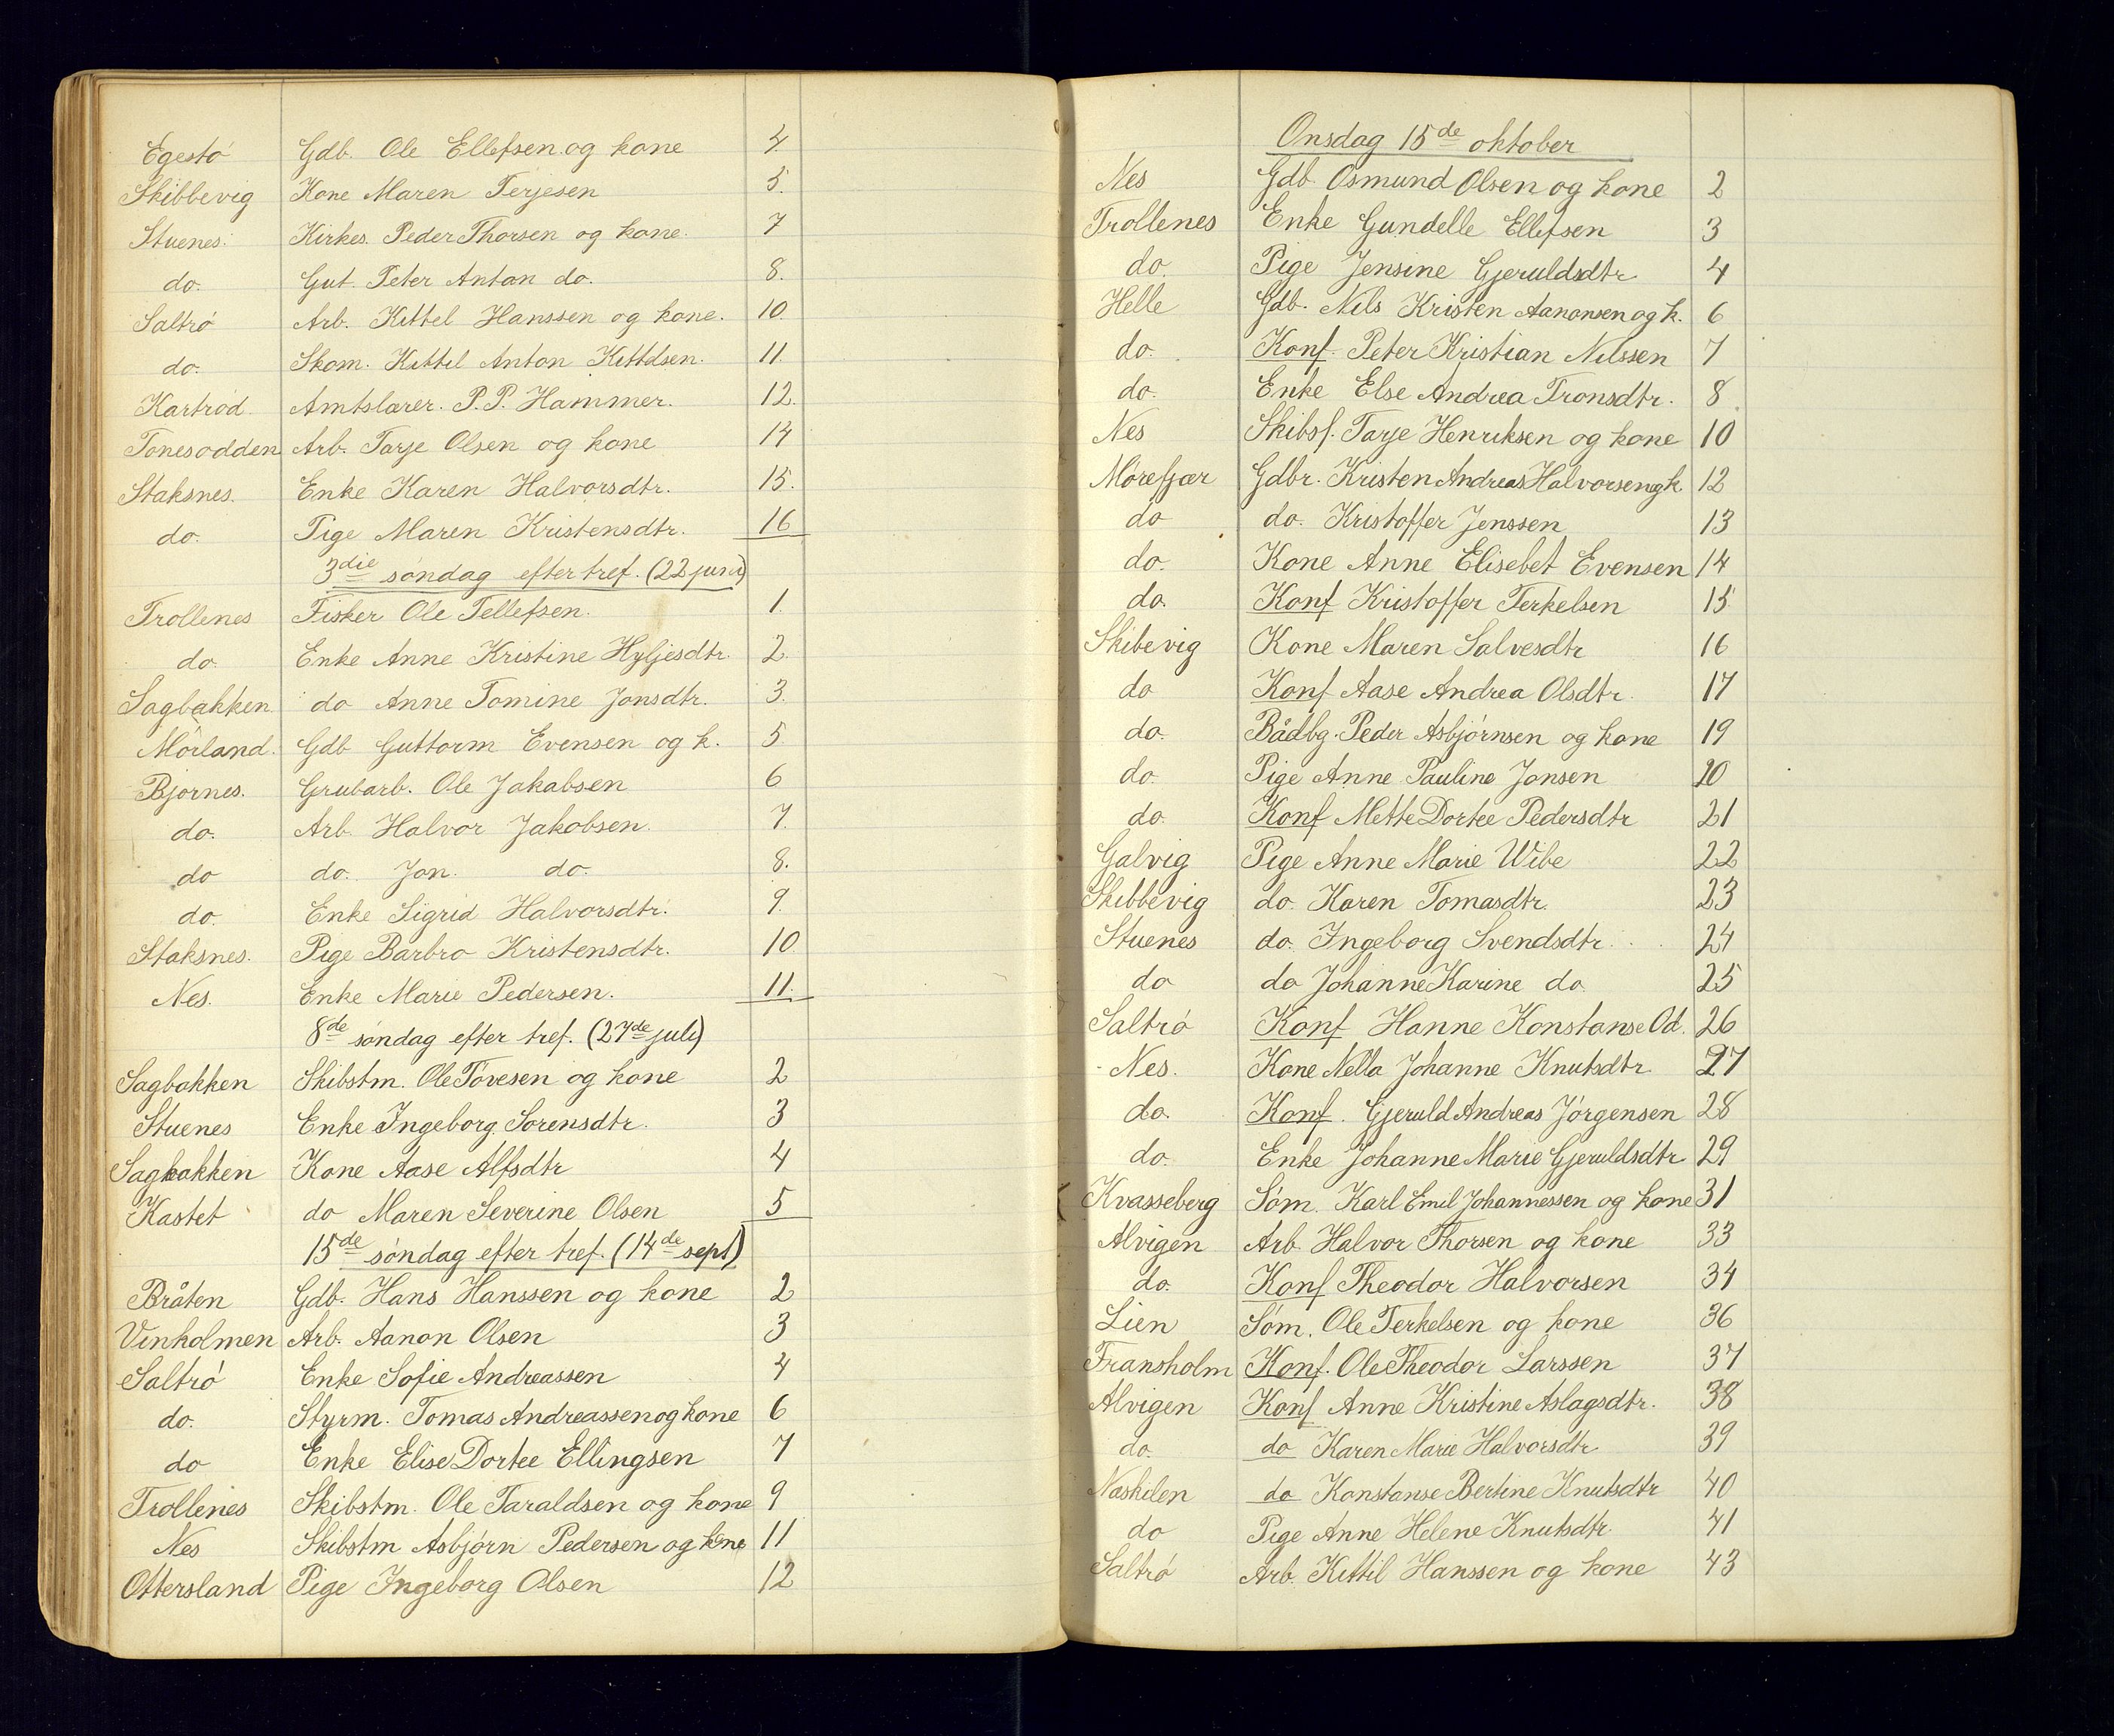 Egestø Gdb. Ole Ellefsen og kone 4
Skibbevig Kone Maren Terjesen 5.
Stuenes. Kirkes. Peder Thorsen og kone. 7
do. Gut. Peter Anton do. 8.
Saltrø Arb. Kittel Hanssen og kone. 10.
do. Skom. Kittil Anton Kittelsen. 11.
Kartrød. Amtslærer. P.P. Hammer. 12.
Tonesodden Arb. Tarje Olsen og kone 14
Staksnes. Enke Karen Halvorsdtr. 15.
do. Pige Maren Kristensdtr. 16
3die søndag efter tref. (22 juni)
Trollenes Fisker Ole Tellefsen. 1.
do. Enke Anne Kristine Hyljesdtr. 2.
Sagbakken. do Anne Tomine Jonsdtr. 3.
Mörland. Gdb Guttorm Evensen og k. 5
Bjornes. Grubarb. Ole Jakobsen 6
do. Arb. Halvor Jakobsen. 7.
do do. Jon. do. 8.
do. Enke Sigrid Halvorsdtr. 9.
Staksnes. Pige Barbro Kristensdtr. 10
Nes. Enke Marie Pedersen. 11.
8de søndag efter tref. (27de juli)
Sagbakken Skibstm. Ole Tövesen og kone 2
Stuenes Enke Ingeborg Sorensdtr. 3
Sagbakken Kone Aase Alfsdtr 4
Kastet do Maren Severine Olsen 5
15de søndag efter tref. (14de sept)
Bråten Gdb. Hans Hanssen og kone 2
Vinholmen Arb. Aanon Olsen 3
Saltrø Enke Sofie Andreassen 4
do. Styrm. Tomas Andreassen og kone 6
do Enke Elise Dortee Ellingsen 7
Trollenes Skibstm. Ole Taraldsen og kone 9
Nes Skibstm Asbjørn Pedersen og kone 11
Ottersland Pige Ingeborg Olsen 12
Onsdag 15de oktober
Nes Gdb. Osmund Olsen og kone 2
Trollenes Enke Gundelle Ellefsen 3
do. Pige Jensine Gjeruldsdtr 4
Helle Gdb. Nils Kristen Aanonsen og k. 6
do. Konf. Peter Kristian Nilssen 7
do. Enke Else Andrea Tronsdtr. 8
Nes Skibsf. Tarje Henriksen og kone 10
Mørefjær Gdbr. Kristen Andreas Halvorsen og k. 12
do do. Kristoffer Jenssen 13
do. Kone Anne Elisebet Evensen 14
do. Konf Kristoffer Terkelsen 15
Skibevig Kone Maren Salvesdtr 16
do Konf Aase Andrea Olsdtr. 17
do. Bådbg. Peder Asbjörnsen og kone 19
do. Pige Anne Pauline Jonsen 20
do. Konf Mette Dortee Pedersdtr 21
Galvig Pige Anne Marie Wibe 22
Skibbevig do. Karen Tomasdtr. 23
Stuenes do. Ingeborg Svendsdtr. 24
do do Johanne Karine do 25
Saltrø Konf Hanne Konstanse Od. 26
Nes. Kone Nella Johanne Knutsdtr. 27
do. Konf. Gjeruld Andreas Jörgensen 28
do. Enke Johanne Marie Gjeruldsdtr 29
Kvasseberg Söm. Karl Emil Johannessen og kone 31
Alvigen Arb. Halvor Thorsen og kone 33
do. Konf Theodor Halvorsen 34
Lien Söm. Ole Terkelsen og kone 36
Fransholm Konf. Ole Theodor Larssen 37
Alvigen Konf Anne Kristine Aslagsdtr. 38
do. do Karen Marie Halvorsdtr 39
Naskilen do Konstanse Bertine Knutsdtr 40
do Pige Anne Helene Knutsdtr. 41
Saltrø Arb. Kittil Hanssen og kone 43